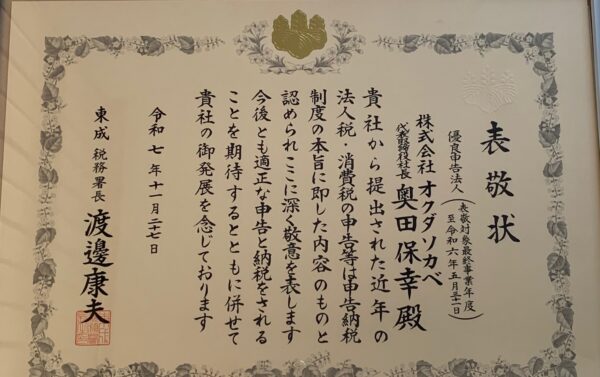 表敬状
優良申告法人(表敬対象最終事業年度
至令和六年五月三十一日)
株式会社 オクダソカベ
代表取締役社長 奥田保幸殿
貴社から提出された近年の
法人税・消費税の申告等は申告納税
制度の本旨に即した内容のものと
認められここに深く敬意を表します
今後とも適正な申告と納税をされる
ことを期待するとともに併せて
貴社の御発展を念じております
令和七年十一月二十七日
東成税務署長 渡邊康夫